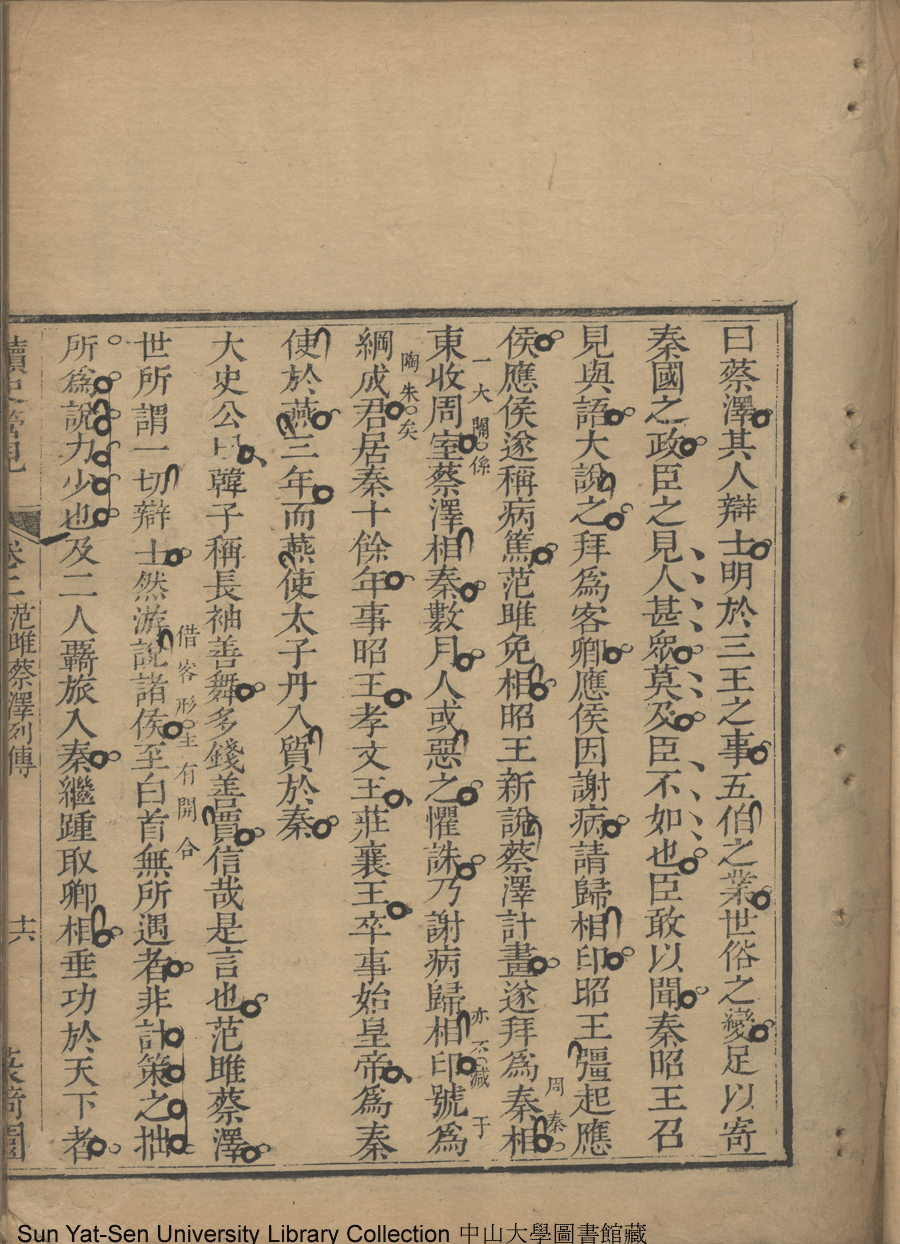 曰蔡澤其人辯士明於三王之事五伯之業世俗之變足以寄
秦國之政臣之見人甚衆莫及臣不如也臣敢以聞秦昭王召
見與語大說之拜爲客卿應侯因謝病請歸相印昭王彊起應
侯應侯遂稱病篤范雎免相昭王新說蔡澤計畫遂拜爲秦相
周秦
一大關係
東收周室蔡澤相秦數月人或惡之懼誅乃謝病歸相印號爲
亦不減于
陶朱矣
綱成君居秦十餘年事昭王孝文王莊襄王卒事始皇帝爲秦
使於燕三年而燕使太子丹入質於秦
大史公曰韓子稱長袖善舞多錢善賈信哉是言也范雎蔡澤
借客形主有開合
世所謂一切辯士然游說諸侯至白首無所遇者非計策之拙
所爲說力少也及二人羈旅入秦繼踵取卿相垂功於天下者
讀史管見 卷二 范雎蔡澤列傳 十六
Sun Yat-Sen University Library Collection 中山大學圖書館藏